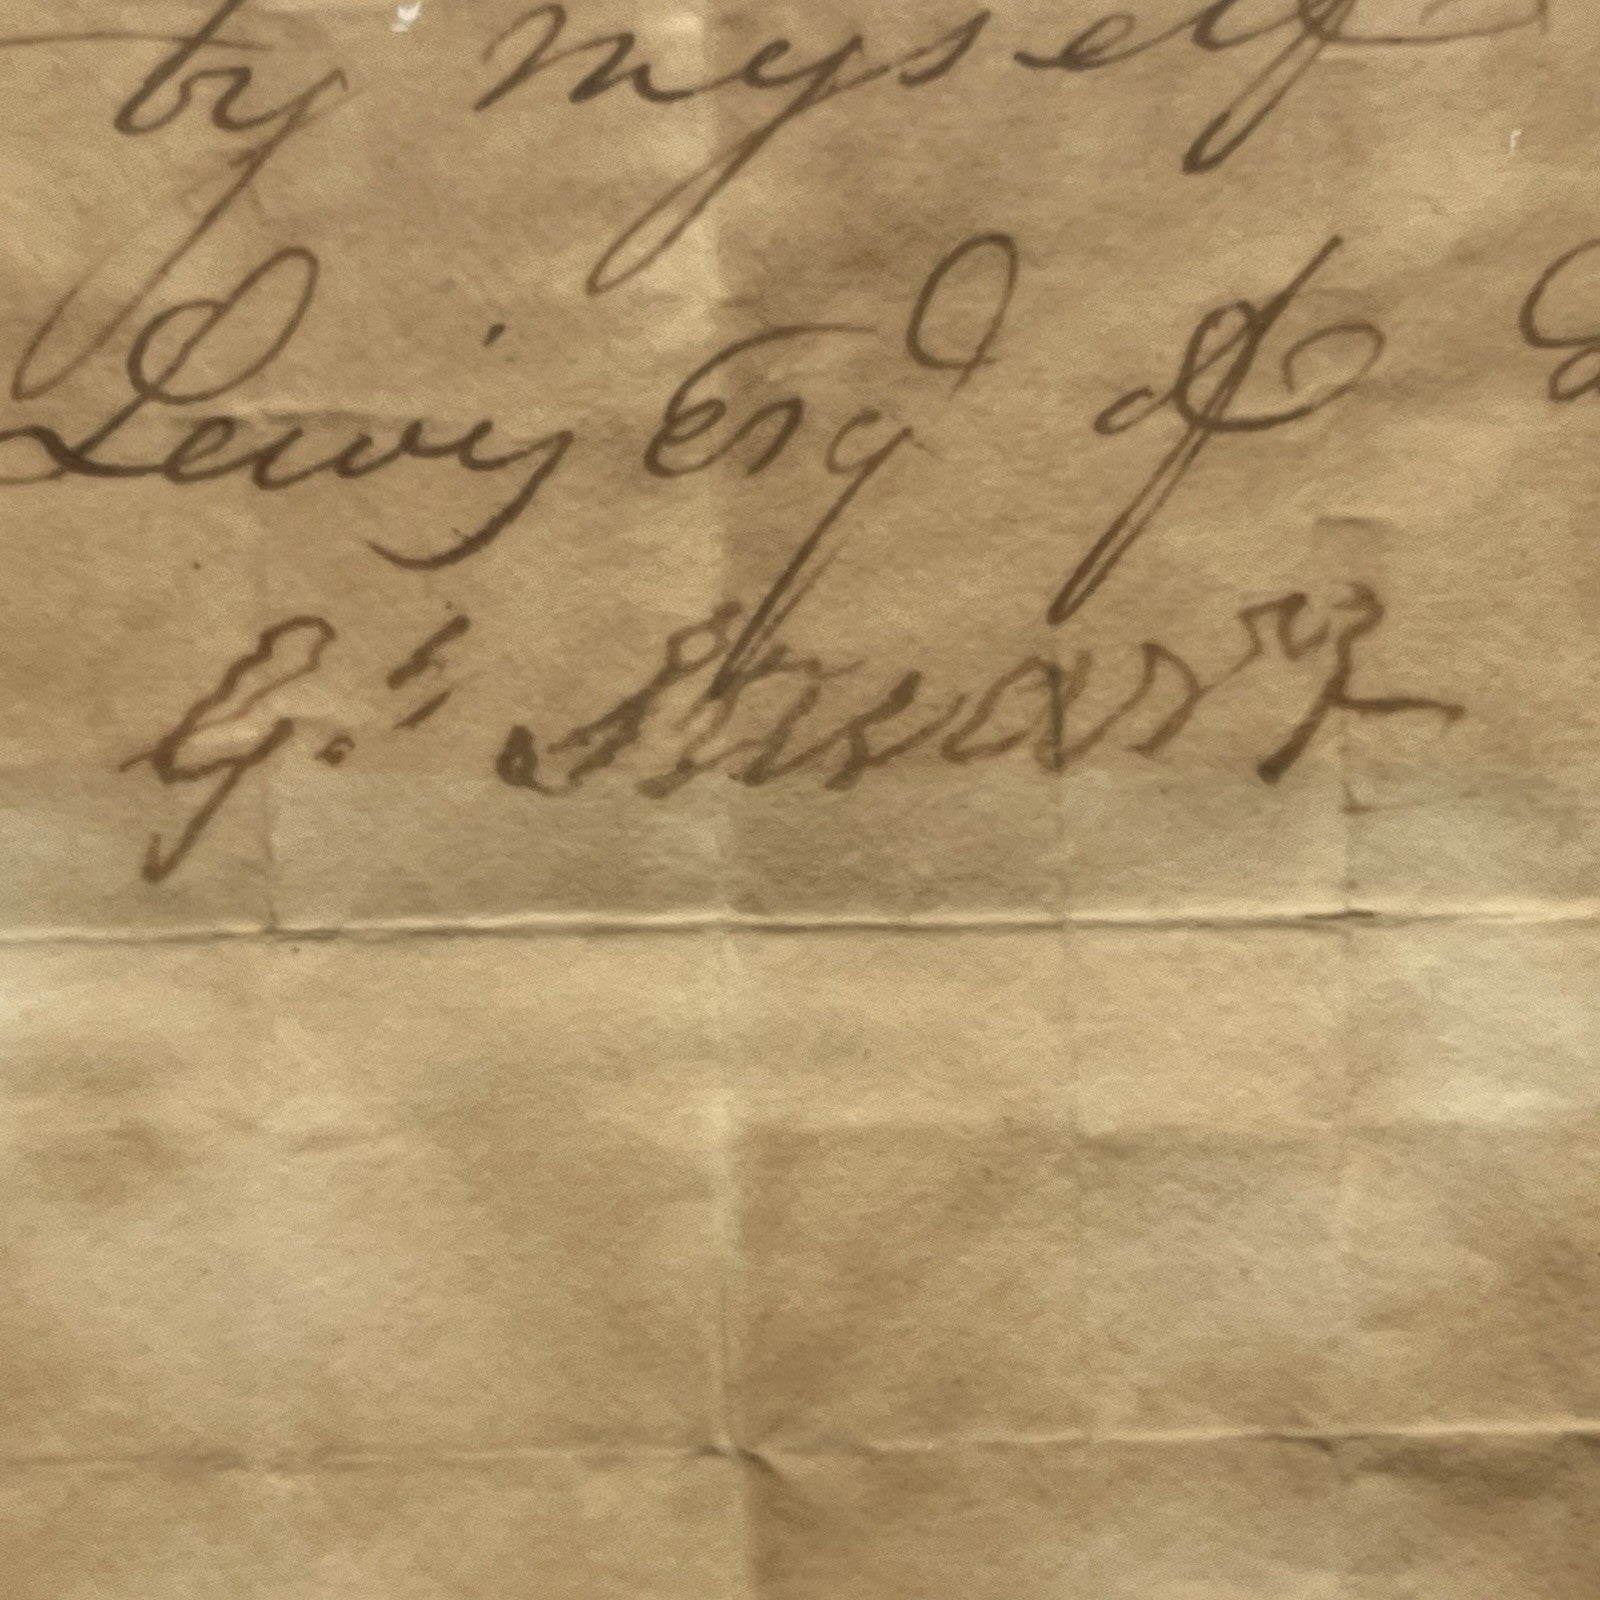 by myself
Lewis Esq &
G. Stuart